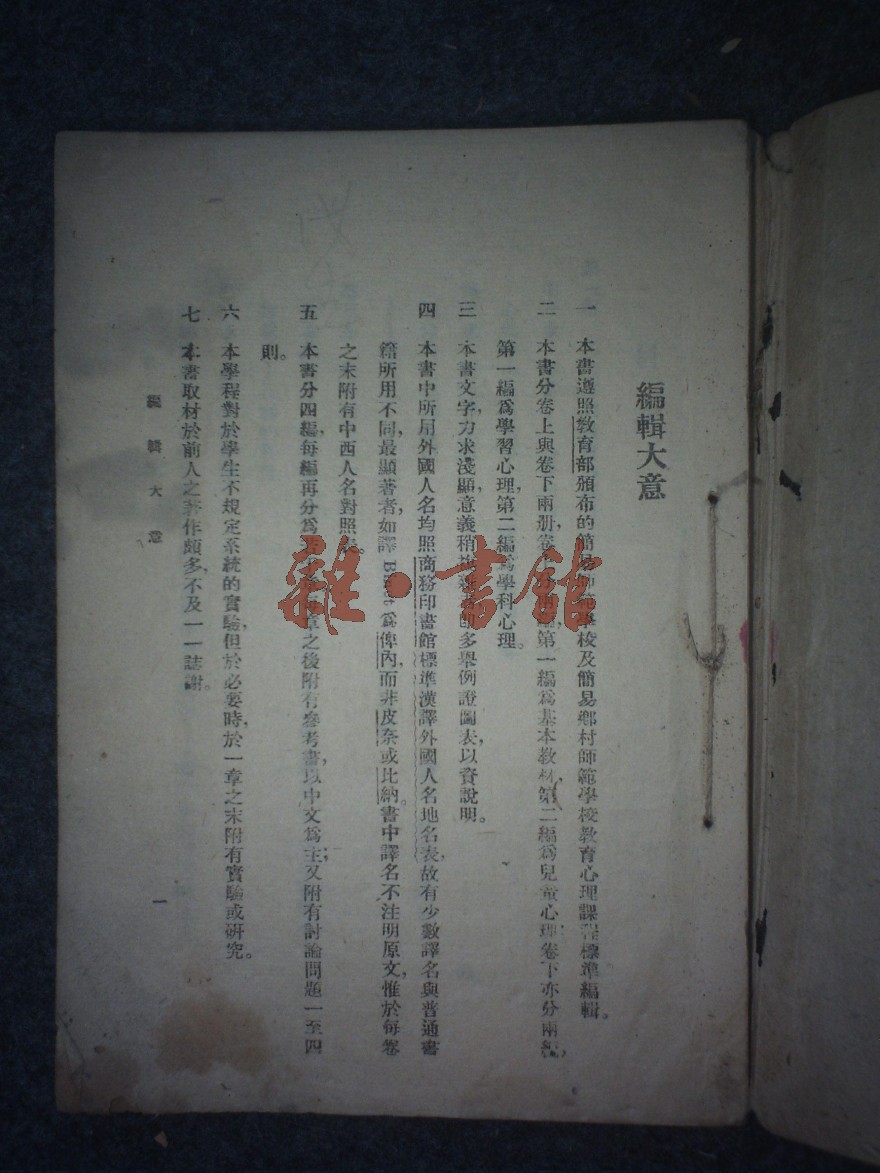 編輯大意
一 本書遵照教育部頒布的簡易師範學校及簡易鄉村師範學校教育心理課程標準編輯。
二 本書分卷上與卷下兩册,卷 第一編爲基本教材,第二編爲兒童心理,卷下亦分兩編,
第一編爲學習心理,第二編爲學科心理。
三 本書文字力求淺顯,意義稍 多舉例證圖表,以資說明。
四 本書中所用外國人名均照商務印書館標準漢譯外國人名地名表,故有少數譯名與普通書
籍所用不同,最顯著者,如譯 爲俾內,而非皮奈或比納。書中譯名不注明原文,惟於每卷
之末附有中西人名對照表。
五 本書分四編,每編再分爲 章之後附有參考書,以中文爲主;又附有討論問題一至四
則。
六 本學程對於學生不規定系統的實驗,但於必要時,於一章之末附有實驗或研究。
七 本書取材於前人之著作頗多,不及一一誌謝。
編輯大意
一
雜·書館